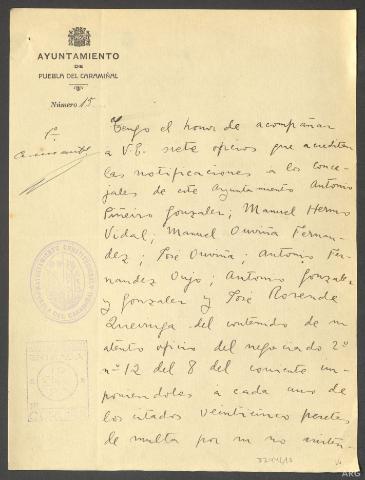 AYUNTAMIENTO
DE
PUEBLA DEL CARAMIÑAL
Número 15
Tengo el honor de acompañar
a V.E. siete oficios que acreditan
las notificaciones a los conce-
jales de este Ayuntamiento Antonio
Piñeiro Gonzalez; Manuel Hermo
Vidal; Manuel Outviña Fernan-
dez; José Outviña; Antonio Fer-
nandez Oujo; Antonio Gonzalez
y Gonzalez y José Rosende
Queiruga del contenido de su
atento oficio del negociado 2º
nº 12 del 8 del corriente im-
poniendoles a cada uno de
los citados veinticinco pesetas
de multa por su no asisten-
ARG